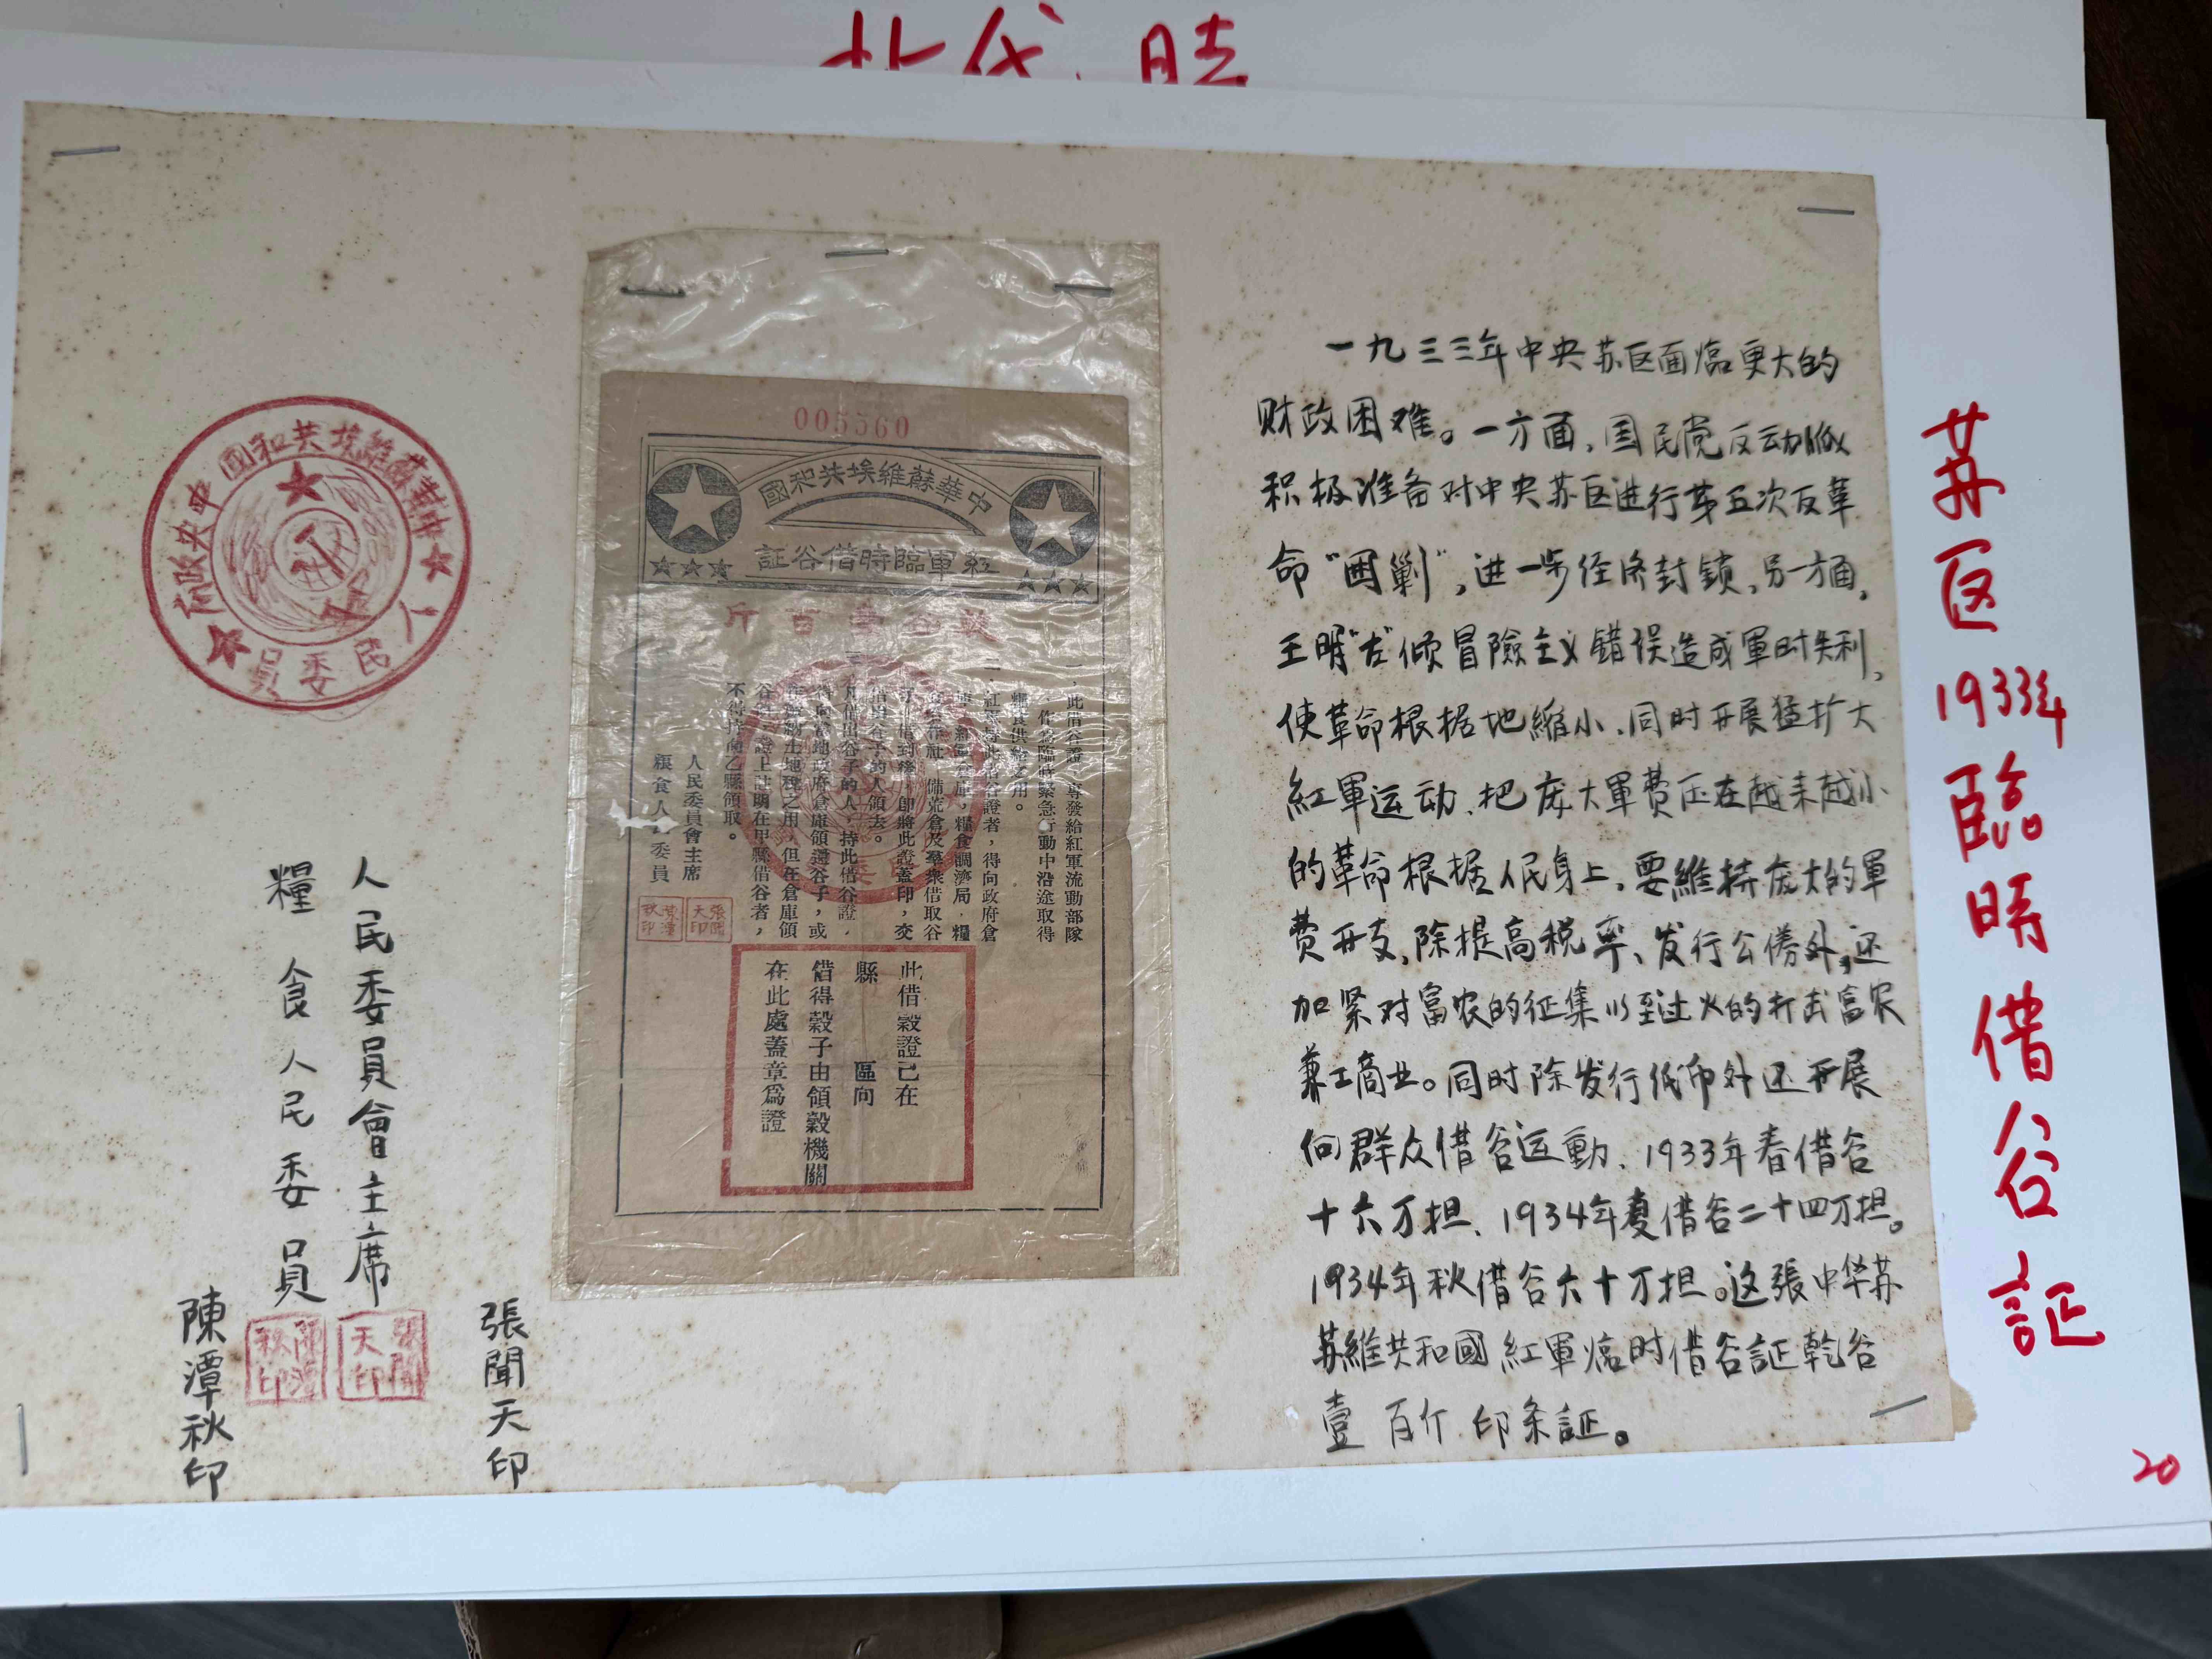 苏区1933年臨時借谷証
20
一九三三年中央苏区面临更大的
财政困难。一方面,国民党反动派
积极准备对中央苏区进行第五次反革
命“围剿”,进一步经济封锁,另一方面,
王明“左”倾冒險主义错误造成軍时失利,
使革命根据地縮小.同时开展猛扩大
紅軍运动.把庞大軍费压在越来越小
的革命根据人民身上.要維持庞大的軍
费开支,除提高税率、发行公债外,还
加紧对富农的征集以至过火的打击富农
兼工商业。同时除发行纸币外还开展
向群众借谷运動.1933年春借谷
十六万担.1934年夏借谷二十四万担。
1934年秋借谷六十万担。这張中华苏
苏維共和國紅軍临时借谷証乾谷
壹百斤.印条証。
005560
中華蘇維埃共和國
紅軍臨時借谷証
乾谷壹百斤
一,此借谷證,專發給紅軍流動部隊
作爲臨時緊急行動中沿途取得
糧食供給之用。
一,紅軍持此借谷證者,得向政府倉
庫,紅軍公谷,糧食調濟局,糧
合作社,備荒倉及羣衆借取谷
子,借到後,即將此證蓋印,交
借與谷子的人領去。
一,凡借出谷子的人,持此借谷證,
得向當地政府倉庫領還谷子,或
作繳納土地稅之用,但在倉庫領
谷時,證上註明在甲縣借谷者,
不得持向乙縣領取。
人民委員會主席
糧食人民委員
張聞天印
陳潭秋印
此借穀證已在
縣 區向
借得穀子由領穀機關
在此處蓋章爲證
中華蘇維埃共和國中央政府
人民委員
人民委員會主席
糧食人民委員
張聞天印
陳潭秋印
張聞天印
陳潭秋印